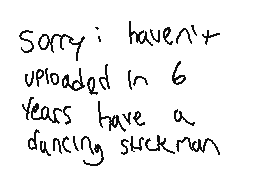 sorry i haven't
uploaded in 6
years have a
dancing stickman